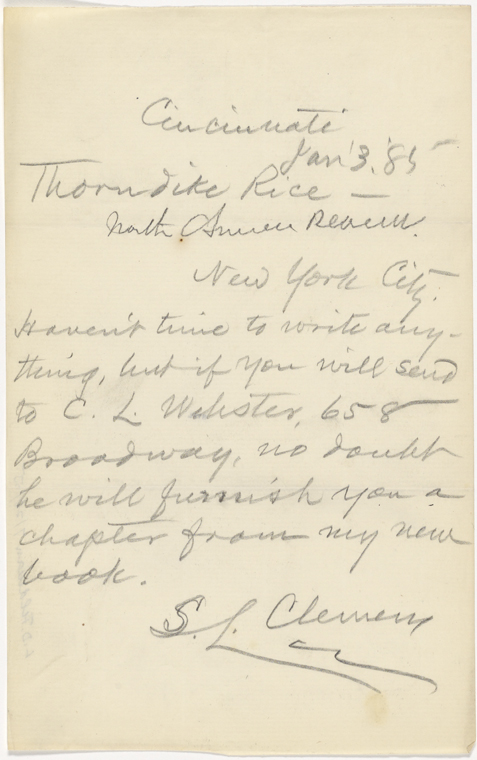 Cincinnati
Jan 3, '85
Thorndike Rice —
North Review.
New York City.
Haven't time to write any-
thing, but if you will send
to C. L. Webster, 658
Broadway, no doubt
he will furnish you a
chapter from my new
book.
S. L. Clemens